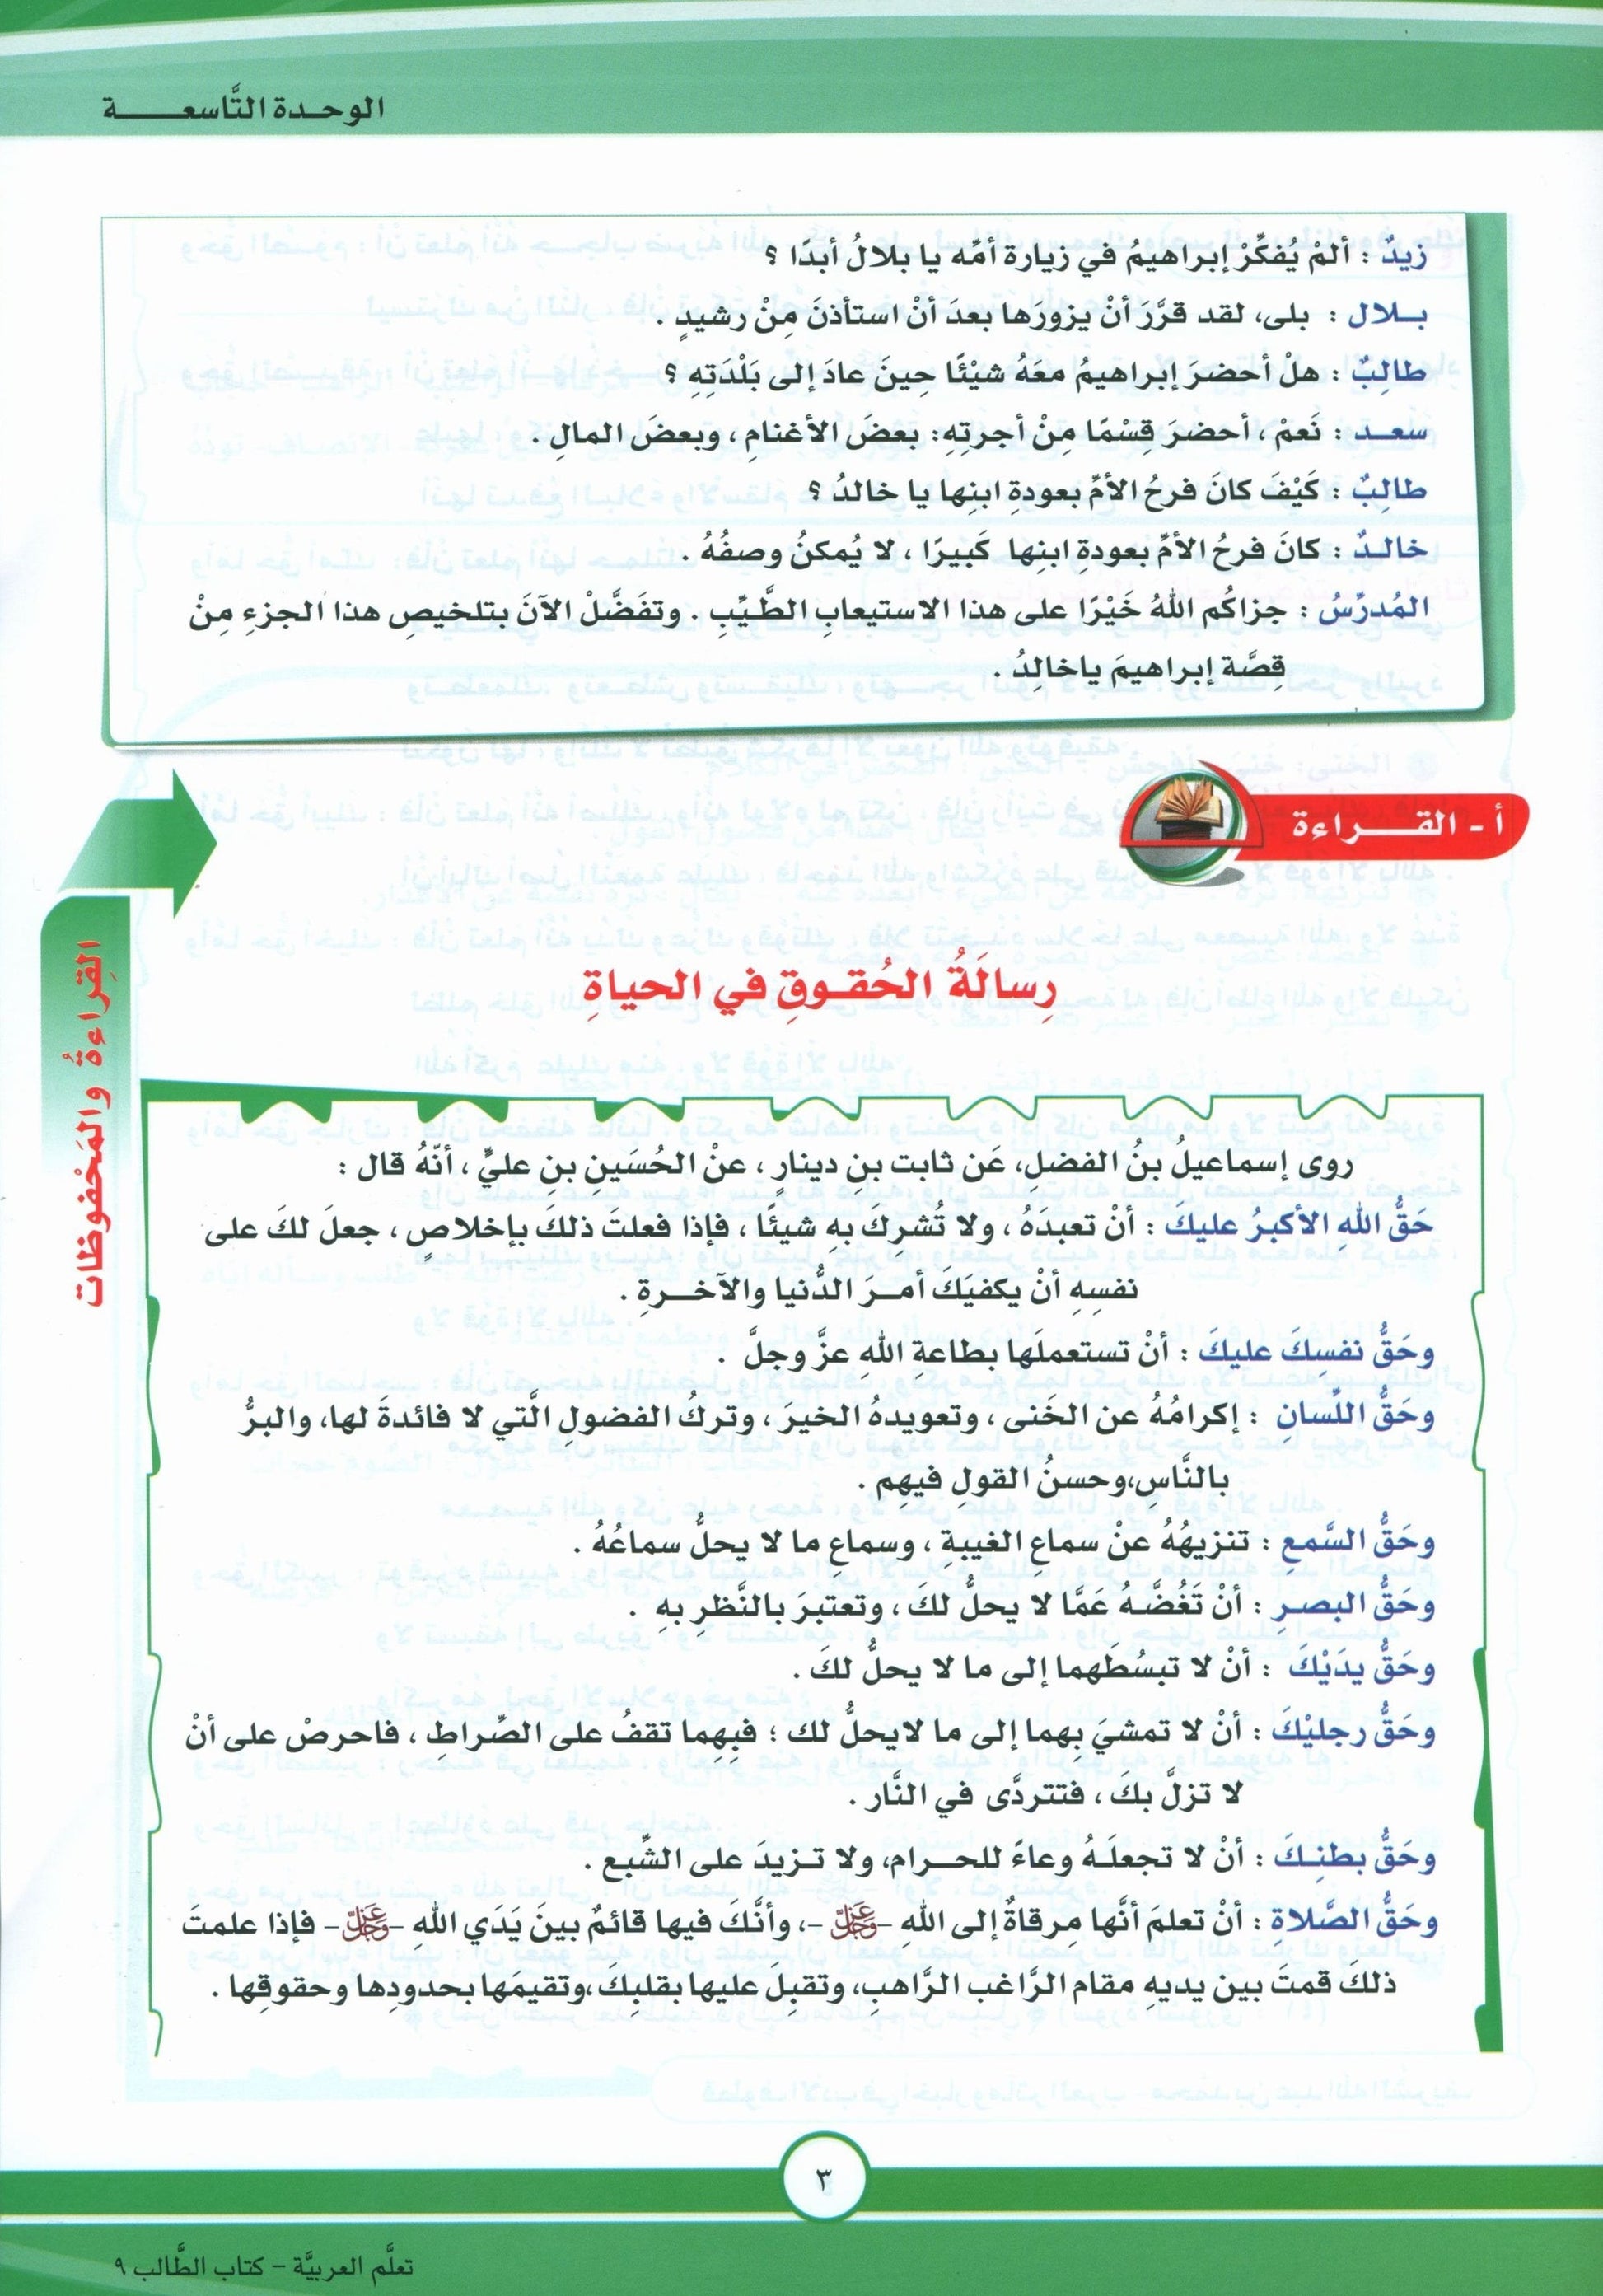 الوحـدة التَّاسعـــــة
زيدٌ : ألمْ يُفكِّرْ إبراهيمُ في زيارة أمِّه يا بلالُ أبدًا ؟
بــلال : بلى، لقد قرَّرَ أنْ يزورَها بعدَ أنْ استأذنَ مِنْ رشيدٍ .
طالِبٌ : هلْ أحضرَ إبراهيمُ معَهُ شيْئًا حِينَ عادَ إلى بَلْدَتِهِ ؟
سعــد : نَعمْ ، أحضرَ قِسْمًا مِنْ أجرتِهِ: بعضَ الأغنامِ ، وبعضَ المالِ .
طالِبٌ : كَيْفَ كانَ فرحُ الأمِّ بعودةِ ابنِها يا خالدُ ؟
خالـدٌ : كانَ فرحُ الأمِّ بعودةِ ابنِها كَبيرًا ، لا يُمكنُ وصفُهُ .
المُدرِّسُ : جزاكُم اللهُ خَيْرًا على هذا الاستيعابِ الطَّيِّبِ . وتفَضَّلْ الآنَ بتلخيصِ هذا الجزءِ مِنْ
قِصَّة إبراهيمَ ياخالِدُ .
أ - القــــراءة
القِراءةُ والمَحْفوظات
رِسالَةُ الحُقـوقِ في الحياةِ
روى إسماعيلُ بنُ الفضلِ، عَن ثابت بنِ دينارٍ ، عنْ الحُسَينِ بنِ عليٍّ ، أنّهُ قال :
حَقُّ اللهِ الأكبرُ عليكَ : أنْ تعبدَهُ ، ولا تُشرِكَ بهِ شيئًا ، فإذا فعلتَ ذلكَ بإخلاصٍ ، جعلَ لكَ على
نفسِهِ أنْ يكفيَكَ أمـرَ الدُّنيا والآخـرةِ .
وحَقُّ نفسِكَ عليكَ : أنْ تستعملَها بطاعةِ اللهِ عزَّ وجلَّ .
وحَقُّ اللِّسانِ : إكرامُهُ عن الخَنى ، وتعويدهُ الخيرَ ، وتركُ الفضولِ الَّتي لا فائدةَ لها، والبرُّ
بالنَّاسِ،وحسنُ القولِ فيهِم .
وحَقُّ السَّمعِ : تنزيهُهُ عنْ سماعِ الغيبةِ ، وسماعِ ما لا يحلُّ سماعُهُ .
وحَقُّ البصـرِ : أنْ تَغُضَّـهُ عَمَّا لا يحلُّ لكَ ، وتعتبرَ بالنَّظرِ بهِ .
وحَقُّ يدَيْكَ : أنْ لا تبسُطَهما إلى ما لا يحلُّ لكَ .
وحَقُّ رجليْكَ : أنْ لا تمشيَ بِهما إلى ما لايحلُّ لك ؛ فبِهِما تقفُ على الصِّراطِ ، فاحرصْ على أنْ
لا تزلَّ بكَ ، فتتردَّى في النَّار .
وحَقُّ بطنِـكَ : أنْ لا تجعلَـهُ وعاءً للحـرام، ولا تـزيدَ على الشِّبع .
وحَقُّ الصَّلاةِ : أنْ تعلمَ أنَّها مرقاةٌ إلى اللهِ -عزوجل-، وأنَّكَ فيها قائمٌ بينَ يَدَي اللهِ -عزوجل- فإذا علمتَ
ذلكَ قمتَ بين يديهِ مقام الرَّاغب الرَّاهبِ، وتقبِلَ عليها بقلبِكَ،وتقيمَها بحدودِها وحقوقِها .
٣
تعلَّم العربيَّة - كتاب الطَّالب ٩